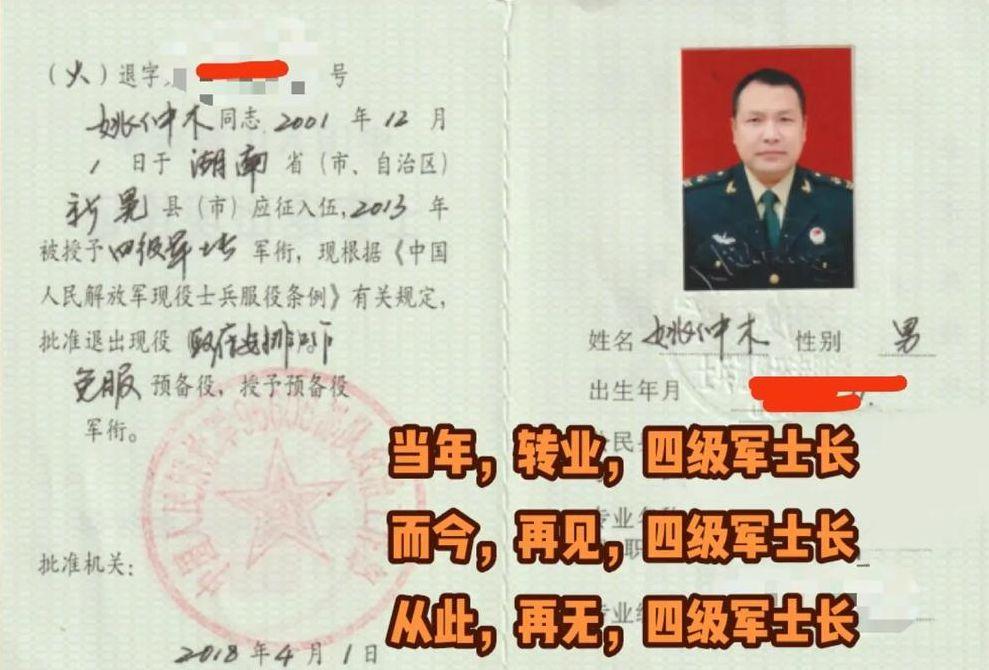 （火）退字 号
姚仲木同志 2001 年 12 月
1 日于 湖南 省（市、自治区）
新晃 县（市）应征入伍，2013 年
被授予四级军士长 军衔，现根据《中国
人民解放军现役士兵服役条例》有关规定，
批准退出现役
免服 预备役，授予预备役
军衔。
批准机关：
2018 年 4 月 1 日
姓名 姚仲木 性别 男
出生年月
当年，转业，四级军士长
而今，再见，四级军士长
从此，再无，四级军士长